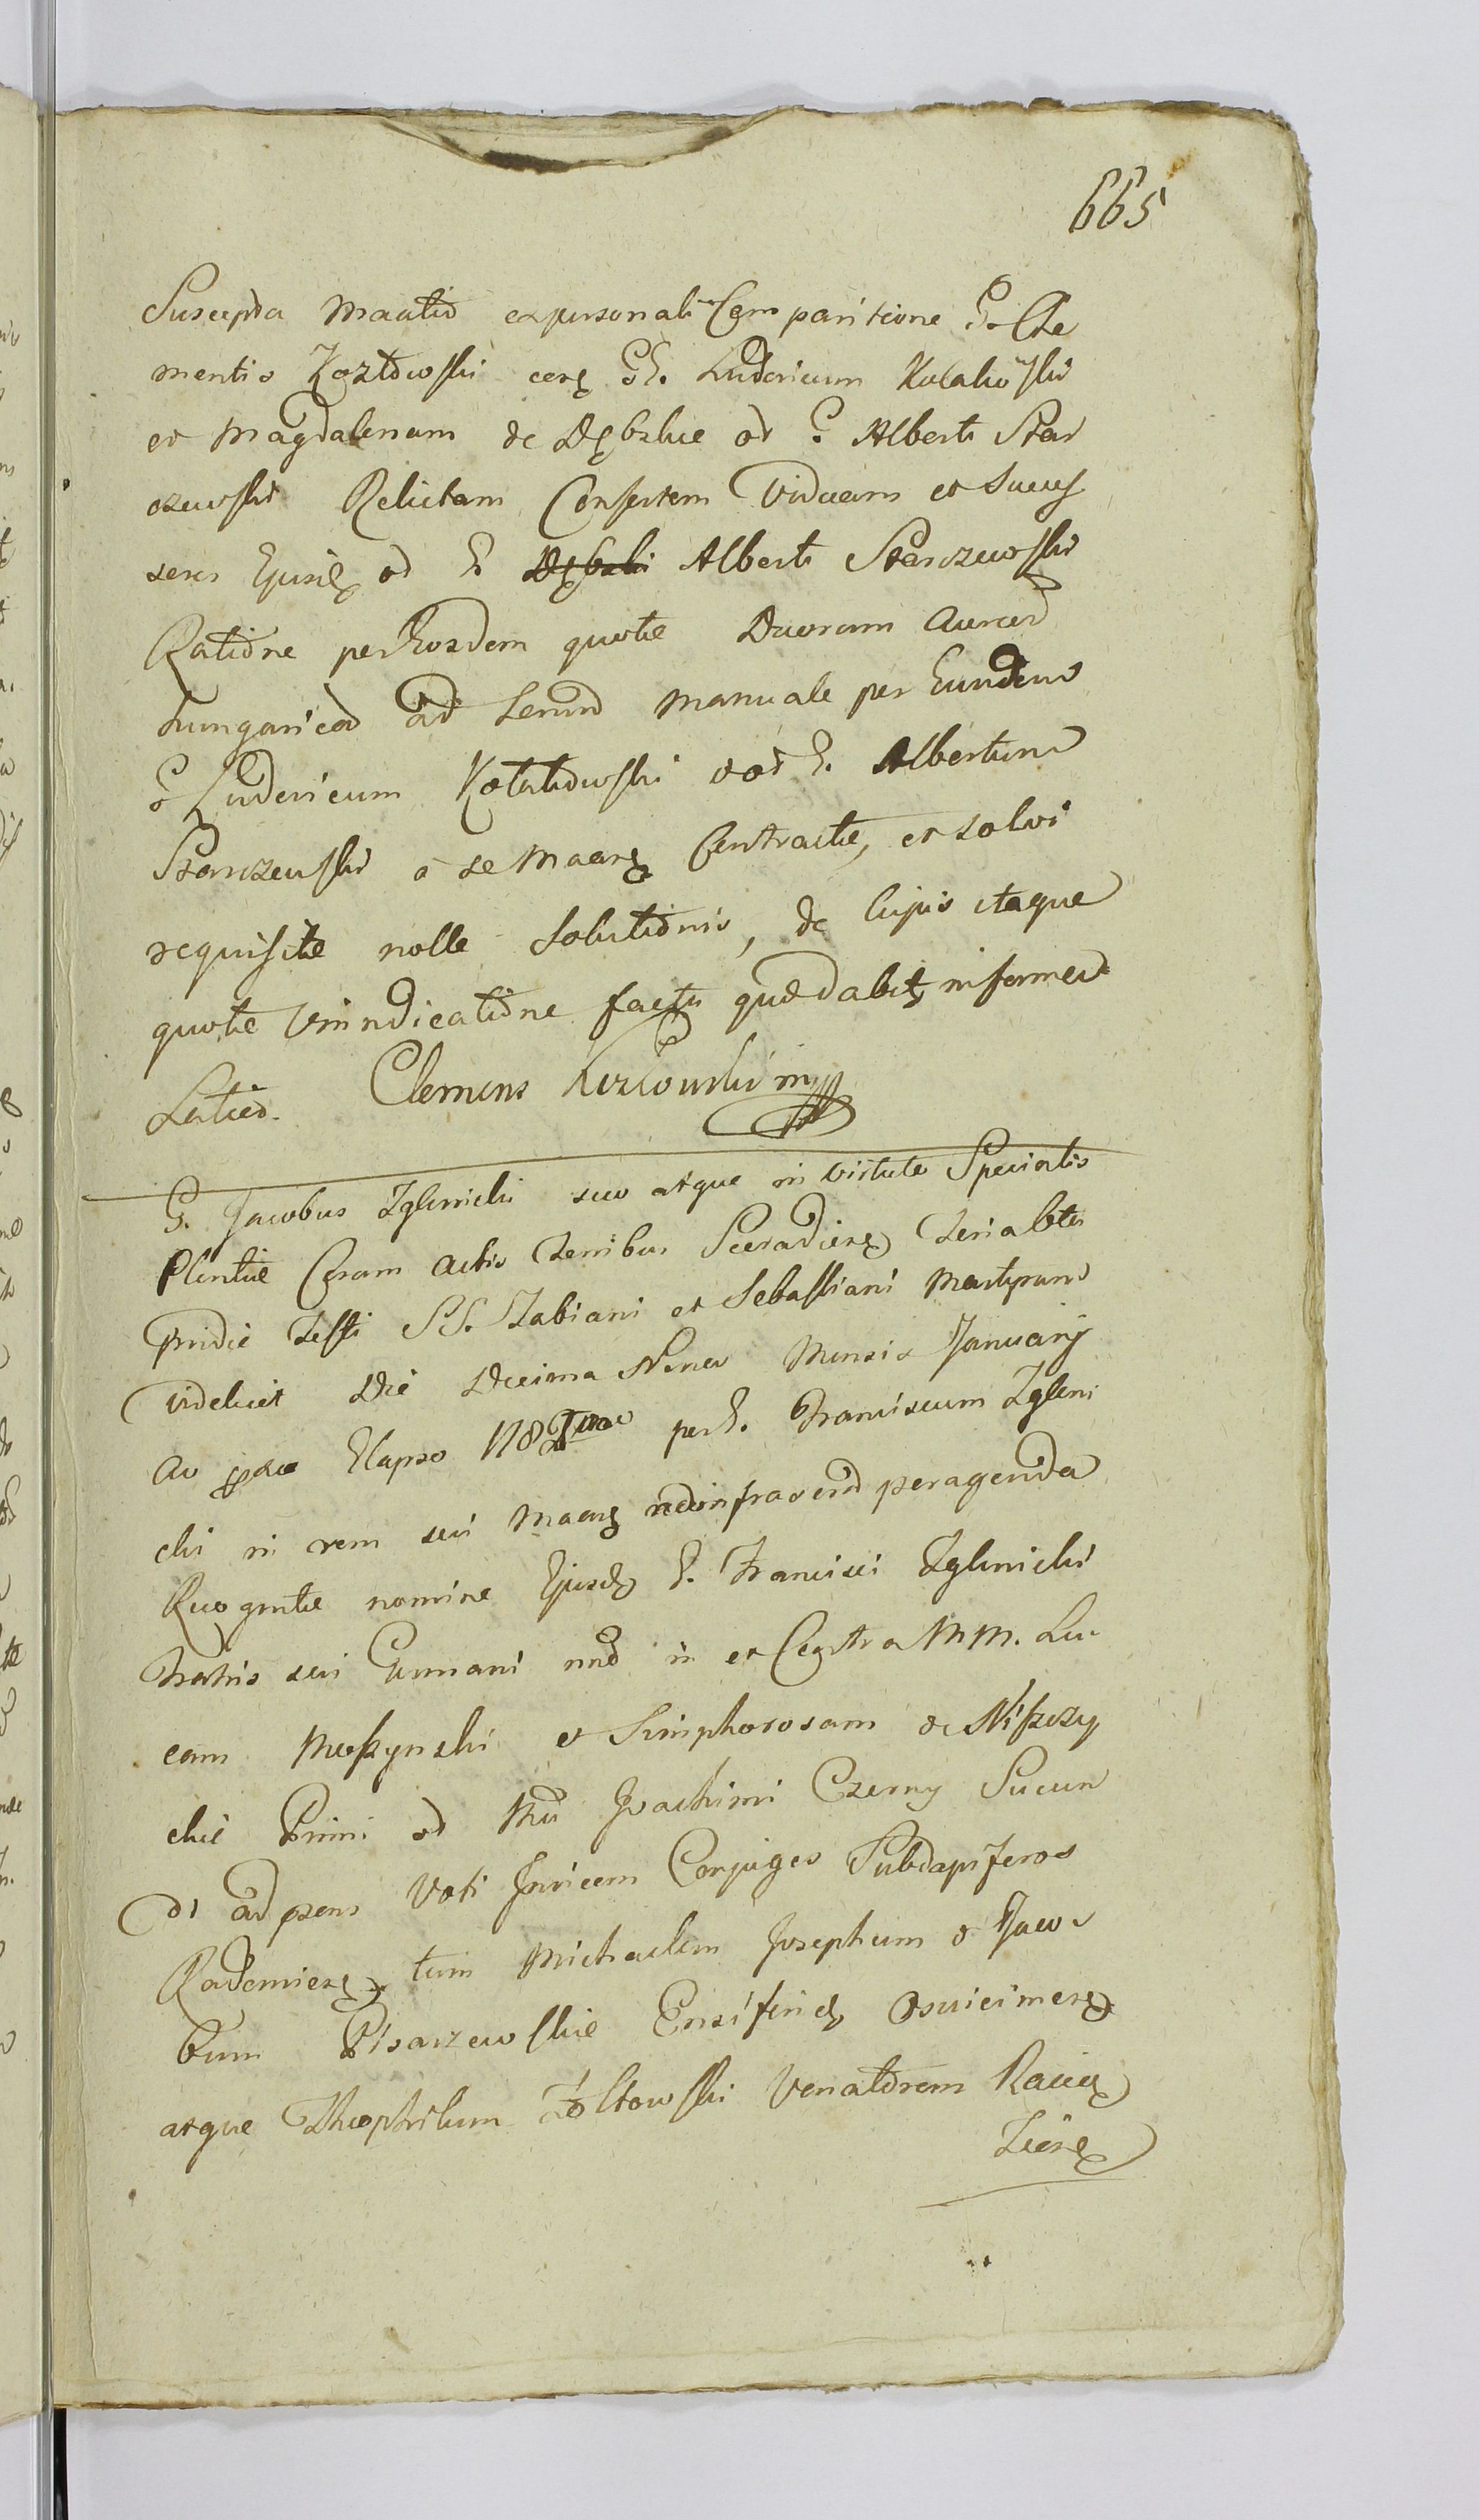 665
Suscepta Maatio ex personali Comparitione G. Cle
mentis Kozłowski cerꝫ GG. Ludovicum Kołakowski
et Magdalenam de Dębskie od G. Alberti Star
czewski Relictam Consortem Viduam et Succes
sores Ejusdꝫ od G. Dębski Alberti Starczewski
Ratione per Eosdem quotae Duorum Aureor
hungarica ad Scrind Manuale per Eundem
G Ludovicum Kołakowski et od G. Albertum
Starczewski a se Maanꝫ Contractae, et solvi
requisitae nolle Solutionis, de Cujus itaque
quotae Vindicatione factu quaedabitꝫ in forma
Latio. Clemens Kozłowski mp
G. Jacobus Zglenicki suo atque in virtute Specialis
Plentiae Coram Actis Terribus Sieradiensꝫ Feriabter
Pridie Festi SS. Fabiani et Sebastiani Martyrum
Videlicet Die Decima Nona Mensis Januarÿ
Ao Elapso per G. Franciscum Zgleni
cki in rem sui Maanꝫ ad infrascrip peragenda
Recognitae nomine Ejusdꝫ G. Francisci Zglenicki
Fratris sui Germani nnd in et Contra MM. Lu
cam Moszynski et Simphorosam de Niszczy
ckie Primi od Mci Joachimi Czerny Secun
di ad psens Voti Invicem Conjuges Subdapiferos
Radomiensꝫ tum Michaelem Josephum et Jaco
bum Pisarzewskie Ensiferidꝫ Oswieimensꝫ
atque Theophilum Żółtowski Venatorem Raciąꝫ
Ziensꝫ